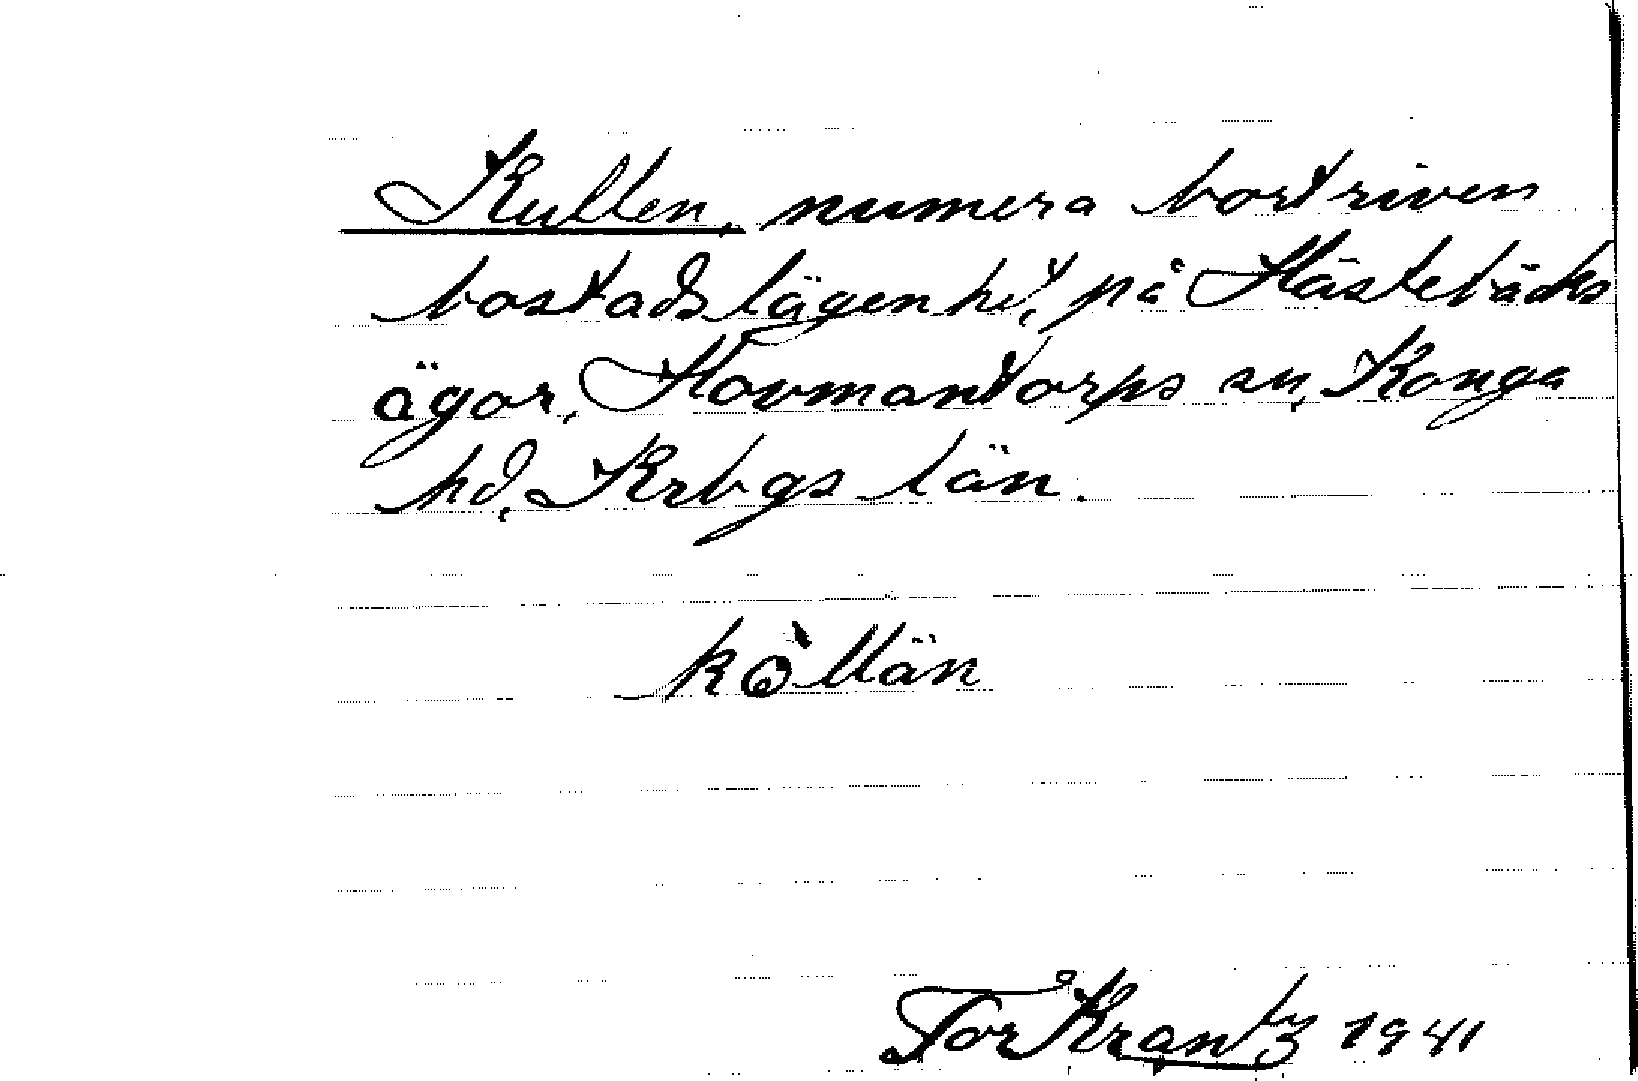 Kullen, numera bortriven
bostadslägenhet, på Hästebäcks
ägor, Hovmantorps sn, Konga
hd, Krbgs län.
kòllän
Tor Krantz 1941